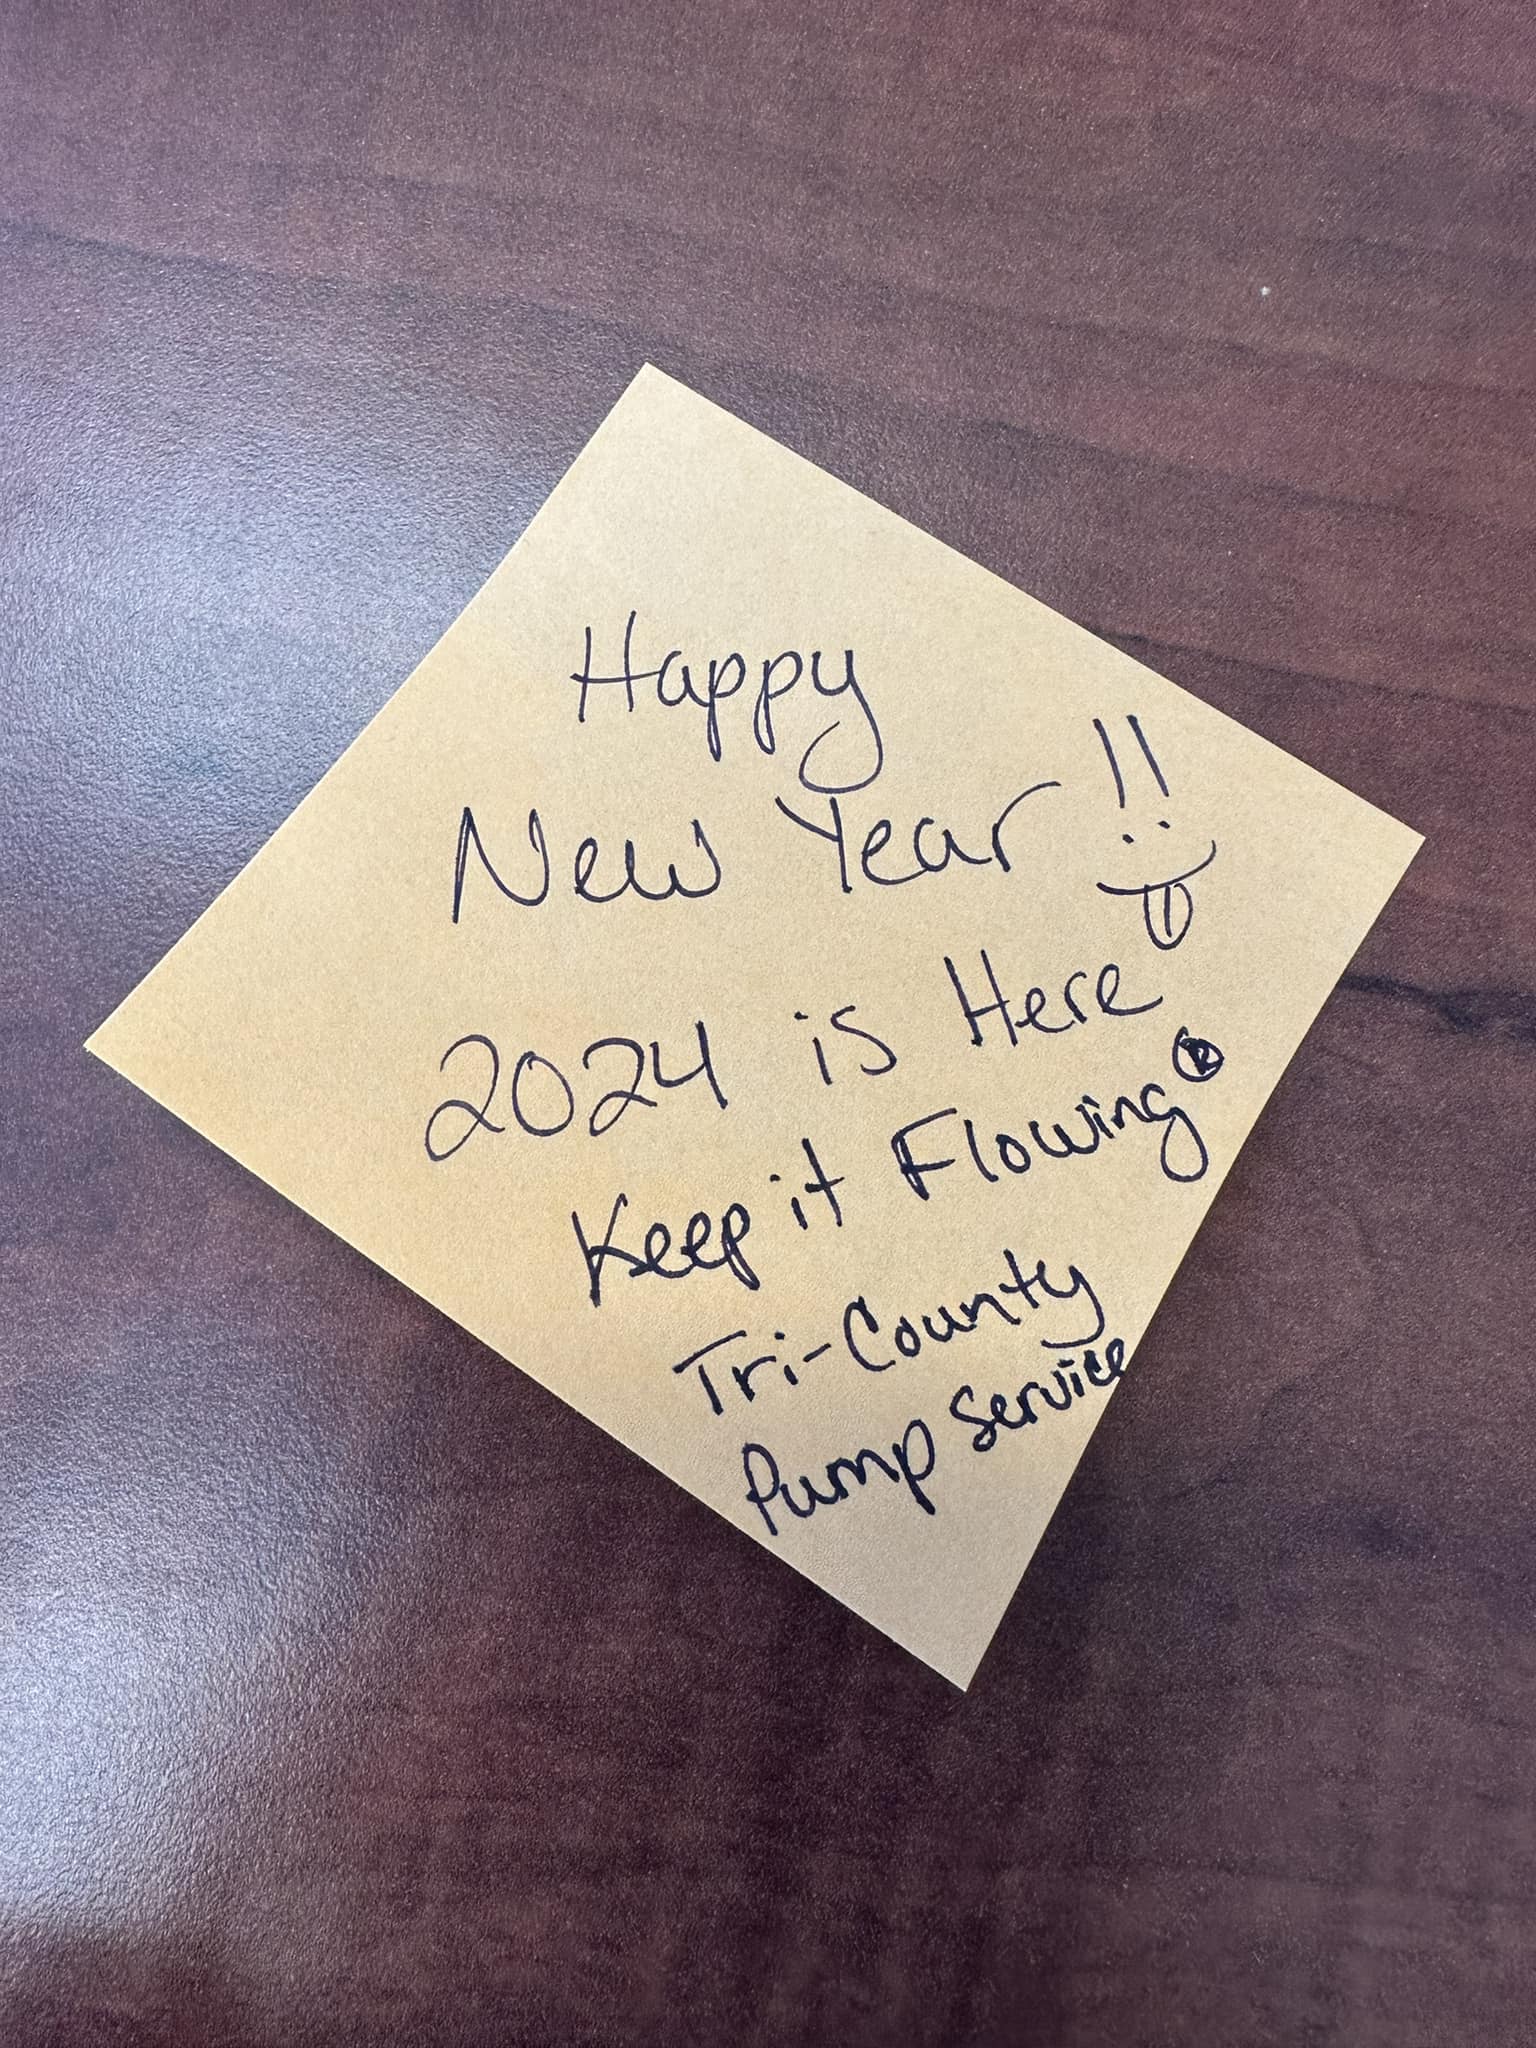 Happy
New Year!!
2024 is Here
Keep it Flowing®
Tri-County
Pump Service